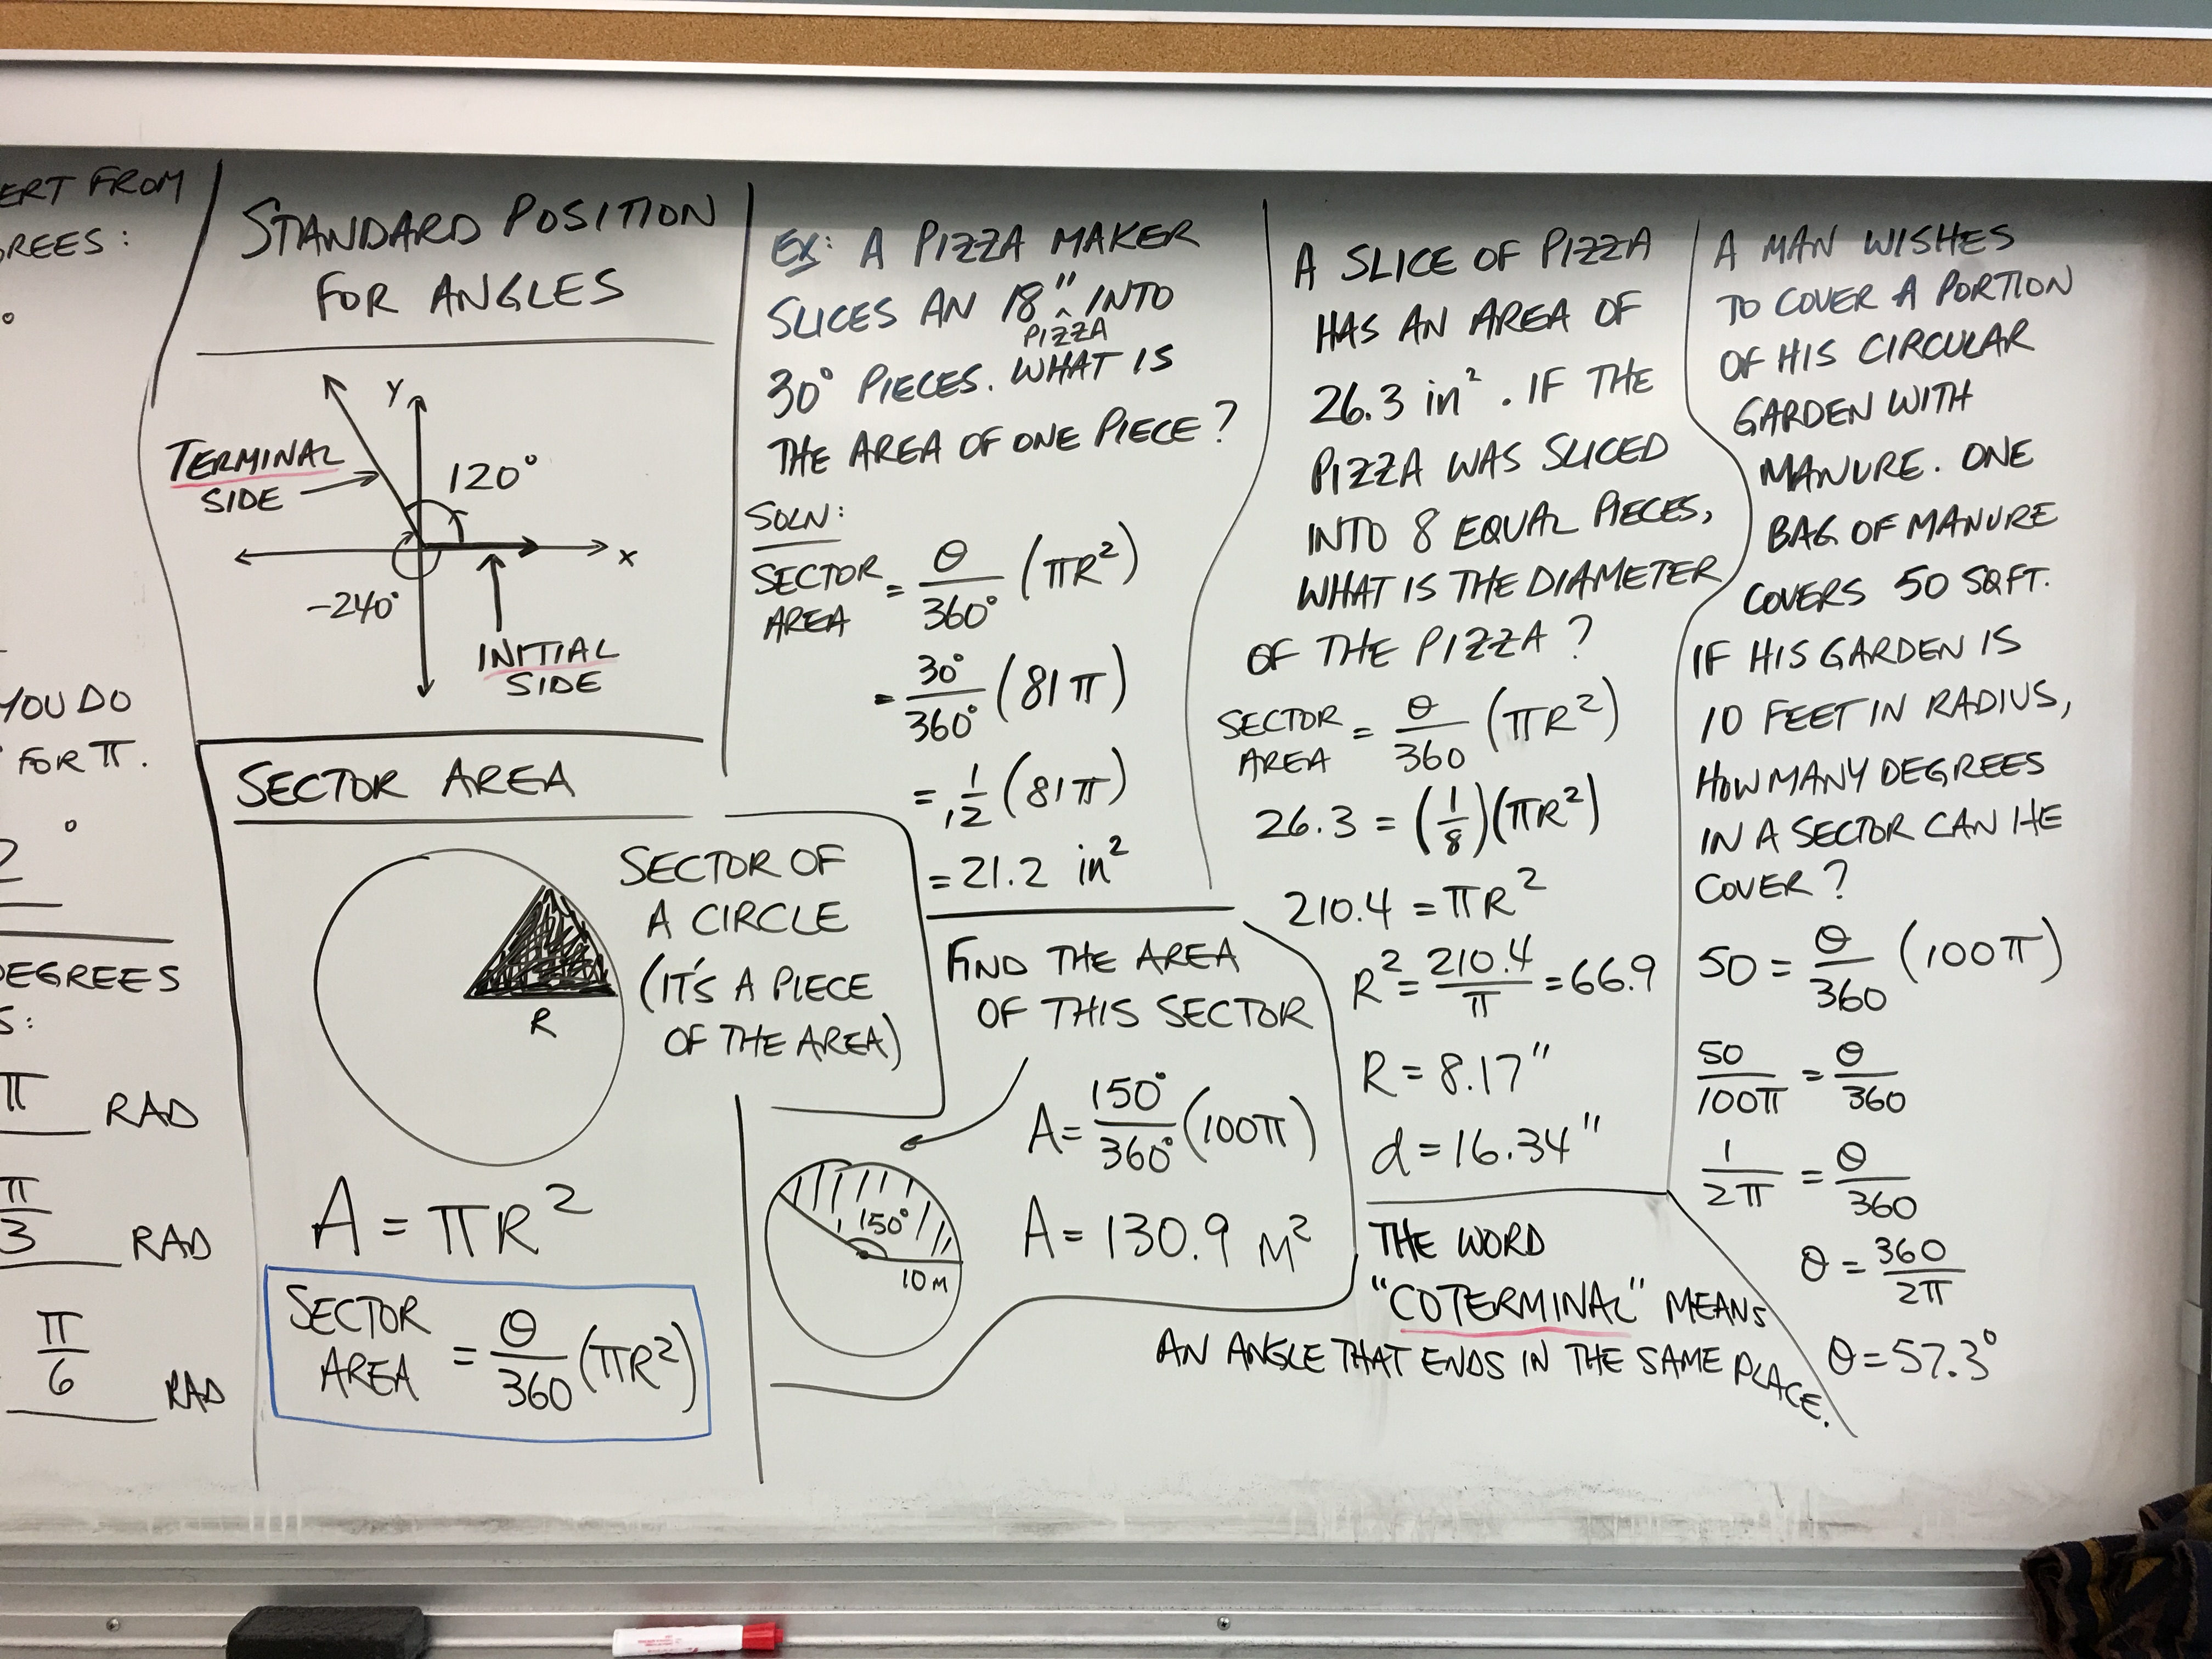 ERT FROM
GREES:
°
YOU DO
FOR π.
2°
DEGREES
S:
π RAD
π/3 RAD
π/6 RAD
STANDARD POSITION
FOR ANGLES
Y
TERMINAL
SIDE
120°
X
-240°
INITIAL
SIDE
SECTOR AREA
SECTOR OF
A CIRCLE
(IT'S A PIECE
OF THE AREA)
R
A = πR²
SECTOR AREA = θ/360 (πR²)
EX: A PIZZA MAKER
SLICES AN 18" ^ INTO
PIZZA
30° PIECES. WHAT IS
THE AREA OF ONE PIECE?
SOLN:
SECTOR AREA = θ/360° (πR²)
= 30°/360° (81π)
= 1/12 (81π)
= 21.2 in²
FIND THE AREA
OF THIS SECTOR
A = 150°/360° (100π)
150°
10 M
A = 130.9 M²
A SLICE OF PIZZA
HAS AN AREA OF
26.3 in². IF THE
PIZZA WAS SLICED
INTO 8 EQUAL PIECES,
WHAT IS THE DIAMETER
OF THE PIZZA?
SECTOR AREA = θ/360 (πR²)
26.3 = (1/8)(πR²)
210.4 = πR²
R² = 210.4/π = 66.9
R = 8.17"
d = 16.34"
THE WORD
"COTERMINAL" MEANS
AN ANGLE THAT ENDS IN THE SAME PLACE.
A MAN WISHES
TO COVER A PORTION
OF HIS CIRCULAR
GARDEN WITH
MANURE. ONE
BAG OF MANURE
COVERS 50 SQFT.
IF HIS GARDEN IS
10 FEET IN RADIUS,
HOW MANY DEGREES
IN A SECTOR CAN HE
COVER?
50 = θ/360 (100π)
50/100π = θ/360
1/2π = θ/360
θ = 360/2π
θ = 57.3°